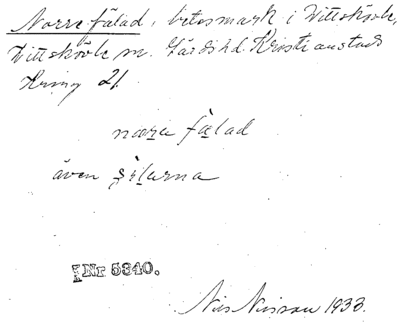 Norre fälad, betesmark i Vittskövle,
Vittskövle sn. Gärds hd. Kristianstads
21.
næra fælad
även
Nr 5340.
Nils Nilsson 1933.